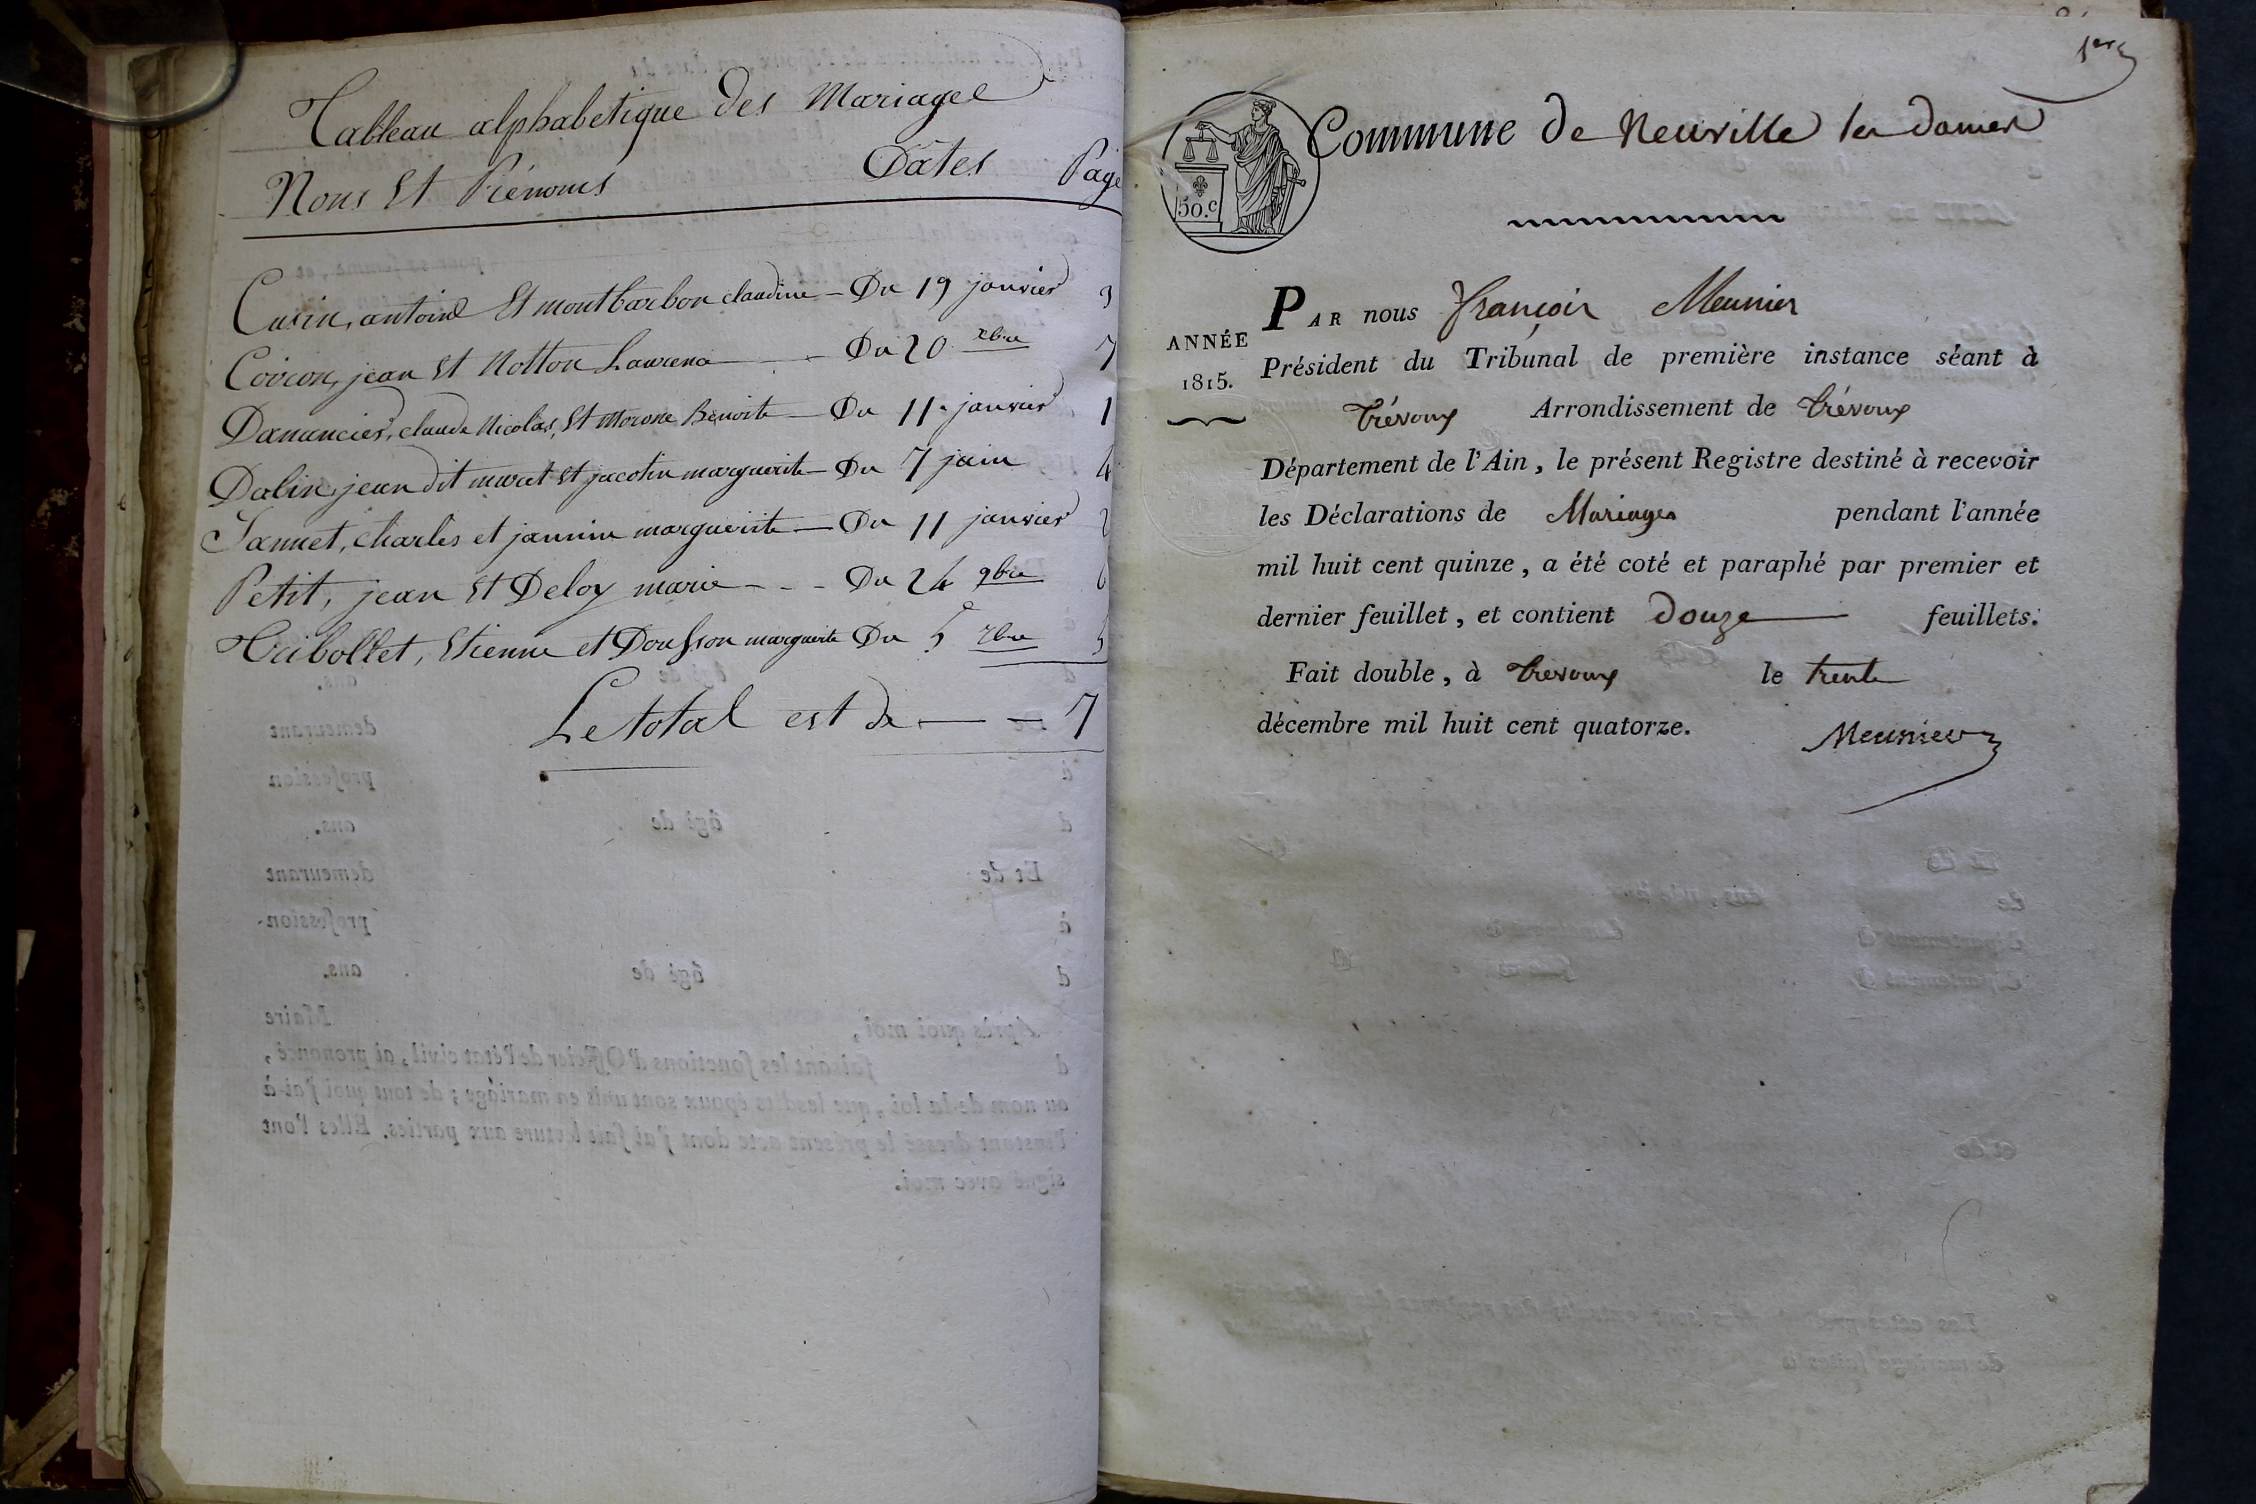 Tableau alphabetique des Mariages
Noms Et Prénoms Dates Page
Cusin, antoine Et montbarbon claudine — Du 19 janvier 3
Coiron, jean Et Notton Laurence — Du 20 xbre 7
Danancier, claude Nicolas, Et Morone Benoite — Du 11 janvier 1
Dalin, jean dit muret Et jacotin marguerite — Du 7 juin 4
Jannet, charles et jannin marguerite — Du 11 janvier 2
Petit, jean Et Deloy marie - - - Du 24 9bre 6
Tribollet, Etienne et Dousson marguerite Du 5 7bre 5
Le total est de — — 7
1er
Commune de Neuville les dames
50.c
PAR nous françois Meunier
ANNÉE
1815.
Président du Tribunal de première instance séant à
Trévoux Arrondissement de Trévoux
Département de l'Ain, le présent Registre destiné à recevoir
les Déclarations de Mariages pendant l'année
mil huit cent quinze, a été coté et paraphé par premier et
dernier feuillet, et contient douze feuillets.
Fait double, à trevoux le trente
décembre mil huit cent quatorze.
Meunier